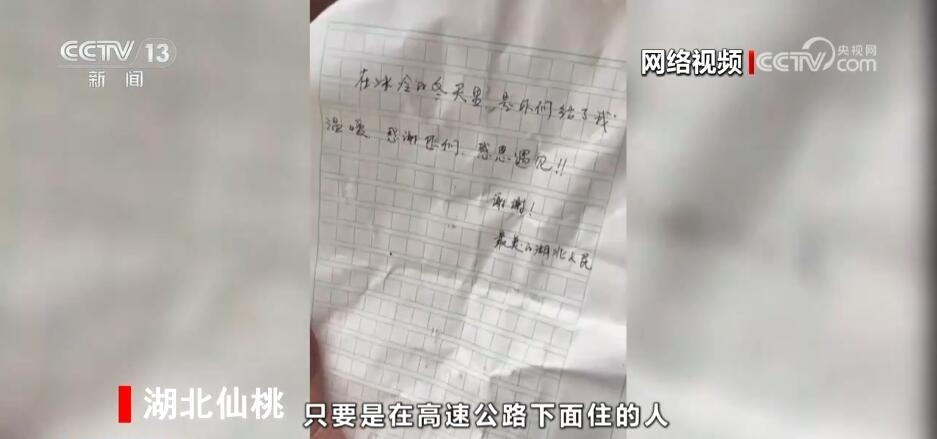 CCTV 13
新闻
网络视频
CCTV 央视网
com
在冰冷的冬天里，是你们给了我
温暖，感谢你们，感恩遇见!!
谢谢!
最美的湖北人民
湖北仙桃
只要是在高速公路下面住的人